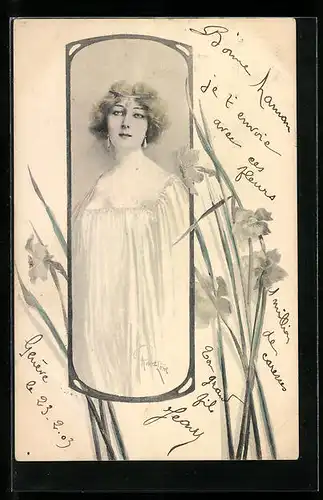 Bonne Maman
je t'envoie
avec ces
fleurs
1 million
de
caresses
Ton grand
fils
Jean
Genève
le 23.2.03